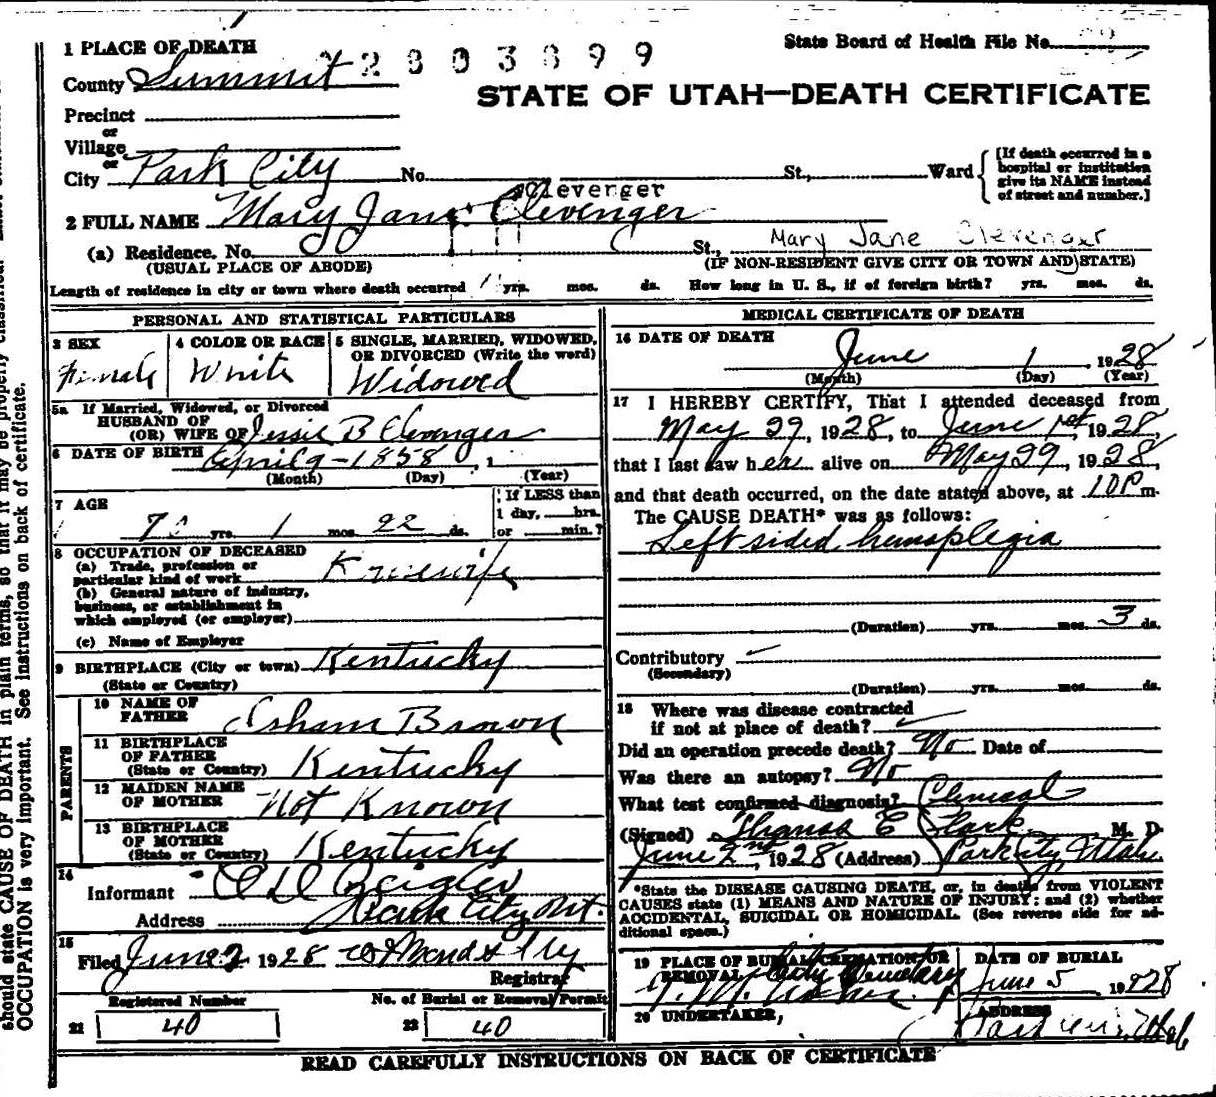 1 PLACE OF DEATH
State Board of Health File No.
2803899
County Summit
STATE OF UTAH—DEATH CERTIFICATE
Precinct
or
Village
or
City Park City No. St., Ward
[If death occurred in a
hospital or institution
give its NAME instead
of street and number.]
Clevenger
2 FULL NAME Mary Jane Clevenger
(a) Residence. No. St., Mary Jane Clevenger
(USUAL PLACE OF ABODE) (IF NON-RESIDENT GIVE CITY OR TOWN AND STATE)
Length of residence in city or town where death occurred yrs. mos. ds. How long in U. S., if of foreign birth? yrs. mos. ds.
PERSONAL AND STATISTICAL PARTICULARS
3 SEX
Female
4 COLOR OR RACE
White
5 SINGLE, MARRIED, WIDOWED,
OR DIVORCED (Write the word)
Widowed
5a If Married, Widowed, or Divorced
HUSBAND OF
(OR) WIFE OF Jessie B Clevenger
6 DATE OF BIRTH April 9-1858, 1
(Month) (Day) (Year)
7 AGE
70 yrs. 1 mos. 22 ds.
If LESS than
1 day, hrs.
or min.?
8 OCCUPATION OF DECEASED
(a) Trade, profession or
particular kind of work
(b) General nature of industry,
business, or establishment in
which employed (or employer)
(c) Name of Employer
9 BIRTHPLACE (City or town) Kentucky
(State or Country)
PARENTS
10 NAME OF
FATHER Isham Brown
11 BIRTHPLACE
OF FATHER
(State or Country) Kentucky
12 MAIDEN NAME
OF MOTHER Not Known
13 BIRTHPLACE
OF MOTHER
(State or Country) Kentucky
14
Informant
Address Park City Ut.
15
Filed June 2 1928
Registrar
Registered Number
21 40
No. of Burial or Removal Permit
22 40
MEDICAL CERTIFICATE OF DEATH
16 DATE OF DEATH
June 1, 1928
(Month) (Day) (Year)
17 I HEREBY CERTIFY, That I attended deceased from
May 29, 1928, to June 1st, 1928,
that I last saw her alive on May 29, 1928,
and that death occurred, on the date stated above, at 10 P m.
The CAUSE DEATH* was as follows:
Left sided hemoplegia
(Duration) yrs. mos. 3 ds.
Contributory
(Secondary)
(Duration) yrs. mos. ds.
18 Where was disease contracted
if not at place of death?
Did an operation precede death? No Date of
Was there an autopsy? No
What test confirmed diagnosis? Clinical
(Signed) Thomas E Clark M. D.
June 2nd, 1928 (Address) Park City, Utah.
*State the DISEASE CAUSING DEATH, or, in deaths from VIOLENT
CAUSES state (1) MEANS AND NATURE OF INJURY; and (2) whether
ACCIDENTAL, SUICIDAL OR HOMICIDAL. (See reverse side for ad-
ditional space.)
19 PLACE OF BURIAL, CREMATION OR
REMOVAL City Cemetery
DATE OF BURIAL
June 5, 1928
20 UNDERTAKER,
ADDRESS
Park City, Utah
READ CAREFULLY INSTRUCTIONS ON BACK OF CERTIFICATE
should state CAUSE OF DEATH in plain terms, so that it may be properly classified.
OCCUPATION is very important. See instructions on back of certificate.